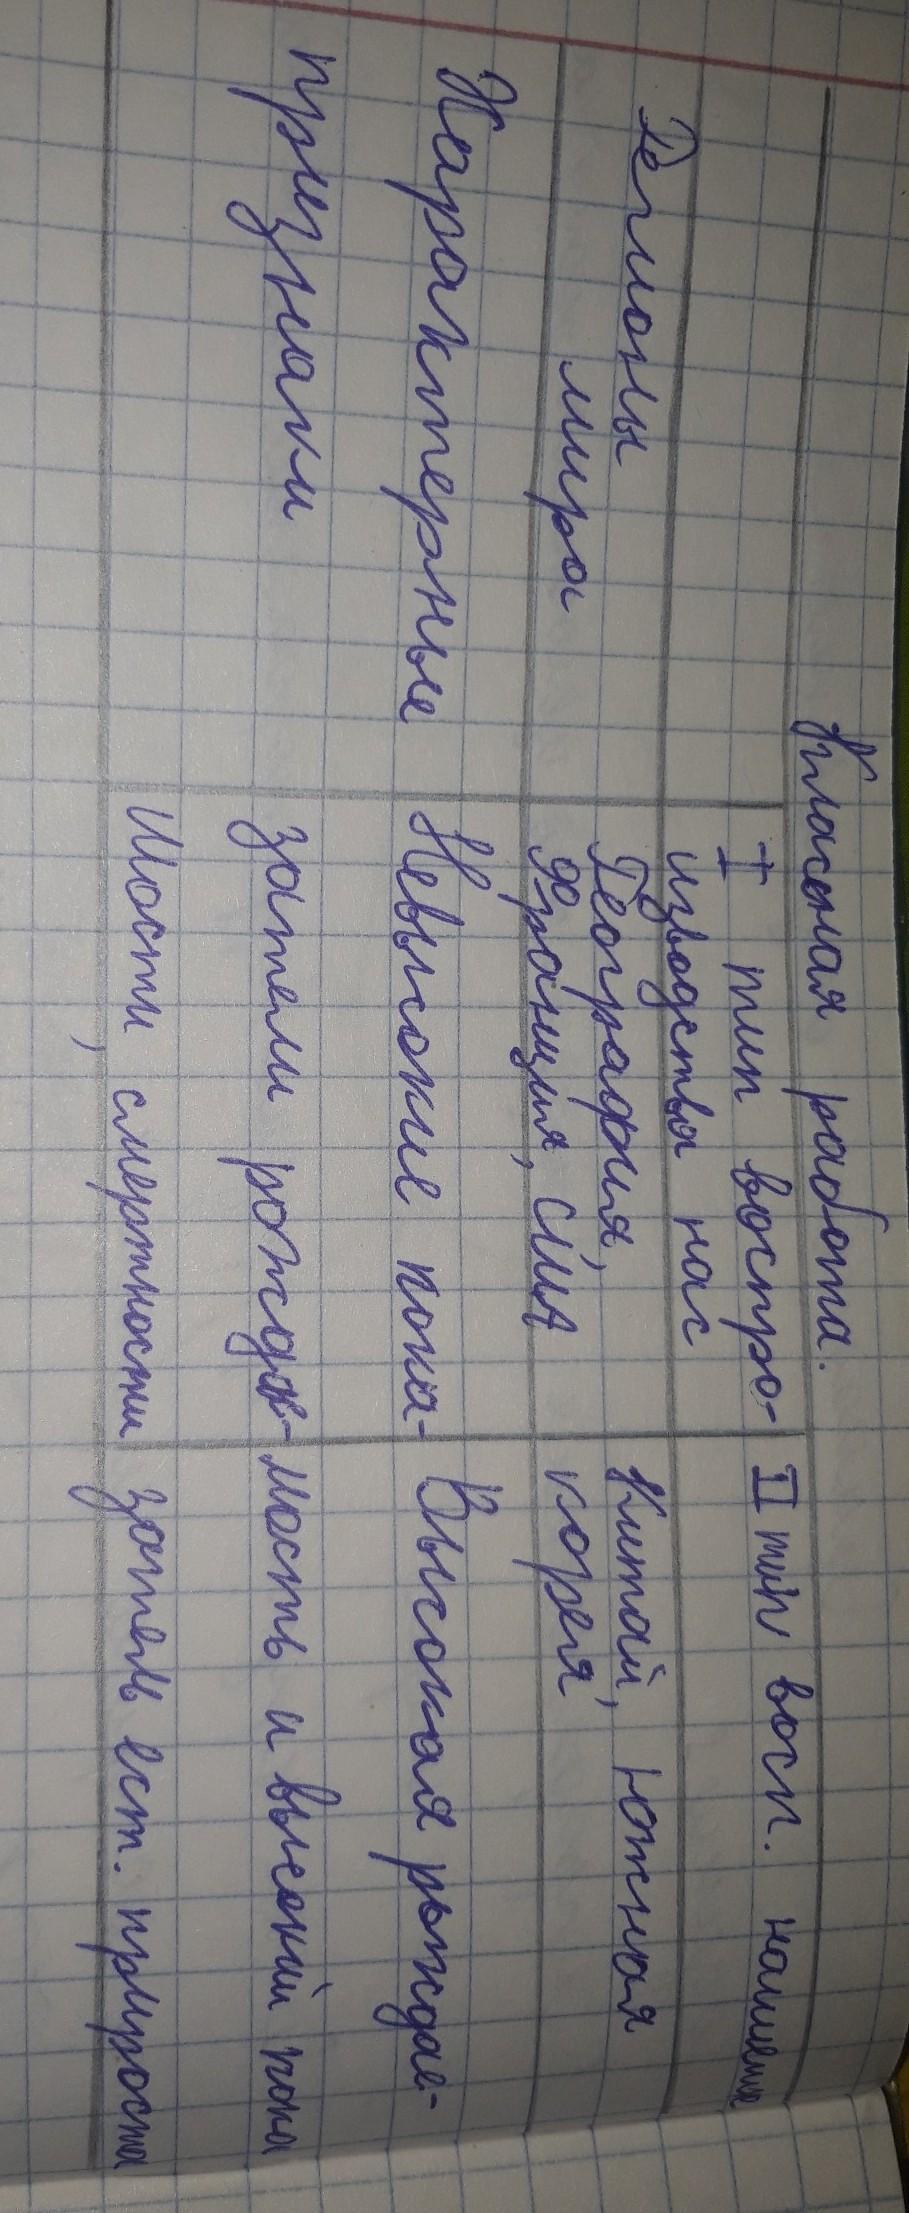 Классная работа.
I тип воспро-
изводства нас
II тип восп. населения
Регионы
мира
География,
Франция, США
Китай, южная
корея
Характерные
признаки
Невысокие пока-
затели рождае-
мости, смертности
Высокая рождае-
мость и высокий пока
затель ест. прироста